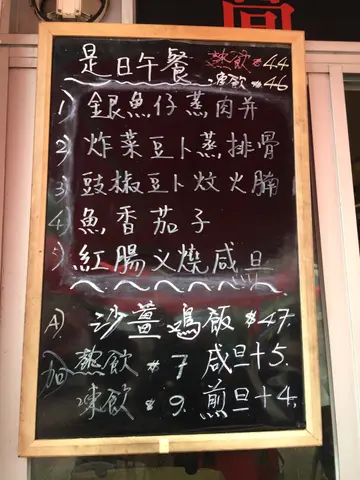 是日午餐 熱飲 $44
凍飲 $46
1) 銀魚仔蒸肉并
2) 炸菜豆卜蒸排骨
3) 豉椒豆卜炆火腩
4) 魚香茄子
5) 紅腸义燒咸旦
A) 沙薑鳮飯 $47.
加 熱飲 $7 咸旦+5.
凍飲 $9. 煎旦+4.